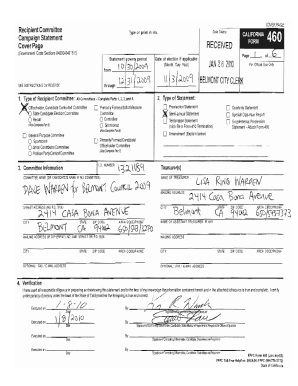 COVER PAGE
Recipient Committee
Campaign Statement
Cover Page
(Government Code Sections 84200-84216.5)
Type or print in ink.
Date Stamp
CALIFORNIA
FORM 460
Statement covers period
from 10/30/2009
through 12/31/2009
Date of election if applicable:
(Month, Day, Year)
11/3/2009
RECEIVED
JAN 26 2010
BELMONT CITY CLERK
Page 1 of 6
For Official Use Only
SEE INSTRUCTIONS ON REVERSE
1. Type of Recipient Committee: All Committees – Complete Parts 1, 2, 3, and 4.
Officeholder, Candidate Controlled Committee
State Candidate Election Committee
Recall
(Also Complete Part 5)
General Purpose Committee
Sponsored
Small Contributor Committee
Political Party/Central Committee
Primarily Formed Ballot Measure
Committee
Controlled
Sponsored
(Also Complete Part 6)
Primarily Formed Candidate/
Officeholder Committee
(Also Complete Part 7)
2. Type of Statement:
Preelection Statement
Semi-annual Statement
Termination Statement
(Also file a Form 410 Termination)
Amendment (Explain below)
Quarterly Statement
Special Odd-Year Report
Supplemental Preelection
Statement - Attach Form 495
3. Committee Information
I.D. NUMBER
1321189
COMMITTEE NAME (OR CANDIDATE'S NAME IF NO COMMITTEE)
DAVE WARREN for BELMONT COUNCIL 2009
STREET ADDRESS (NO P.O. BOX)
2414 CASA BONA AVENUE
CITY STATE ZIP CODE AREA CODE/PHONE
BELMONT CA 94002
MAILING ADDRESS (IF DIFFERENT) NO. AND STREET OR P.O. BOX
CITY STATE ZIP CODE AREA CODE/PHONE
OPTIONAL: FAX / E-MAIL ADDRESS
Treasurer(s)
NAME OF TREASURER
LISA RING WARREN
MAILING ADDRESS
2414 CASA BONA AVENUE
CITY STATE ZIP CODE AREA CODE/PHONE
Belmont CA 94002
NAME OF ASSISTANT TREASURER, IF ANY
MAILING ADDRESS
CITY STATE ZIP CODE AREA CODE/PHONE
OPTIONAL: FAX / E-MAIL ADDRESS
4. Verification
I have used all reasonable diligence in preparing and reviewing this statement and to the best of my knowledge the information contained herein and in the attached schedules is true and complete. I certify
under penalty of perjury under the laws of the State of California that the foregoing is true and correct.
Executed on 1-8-10 By
Executed on 1/8/2010 By
Executed on By
Executed on By
FPPC Form 460
State of California